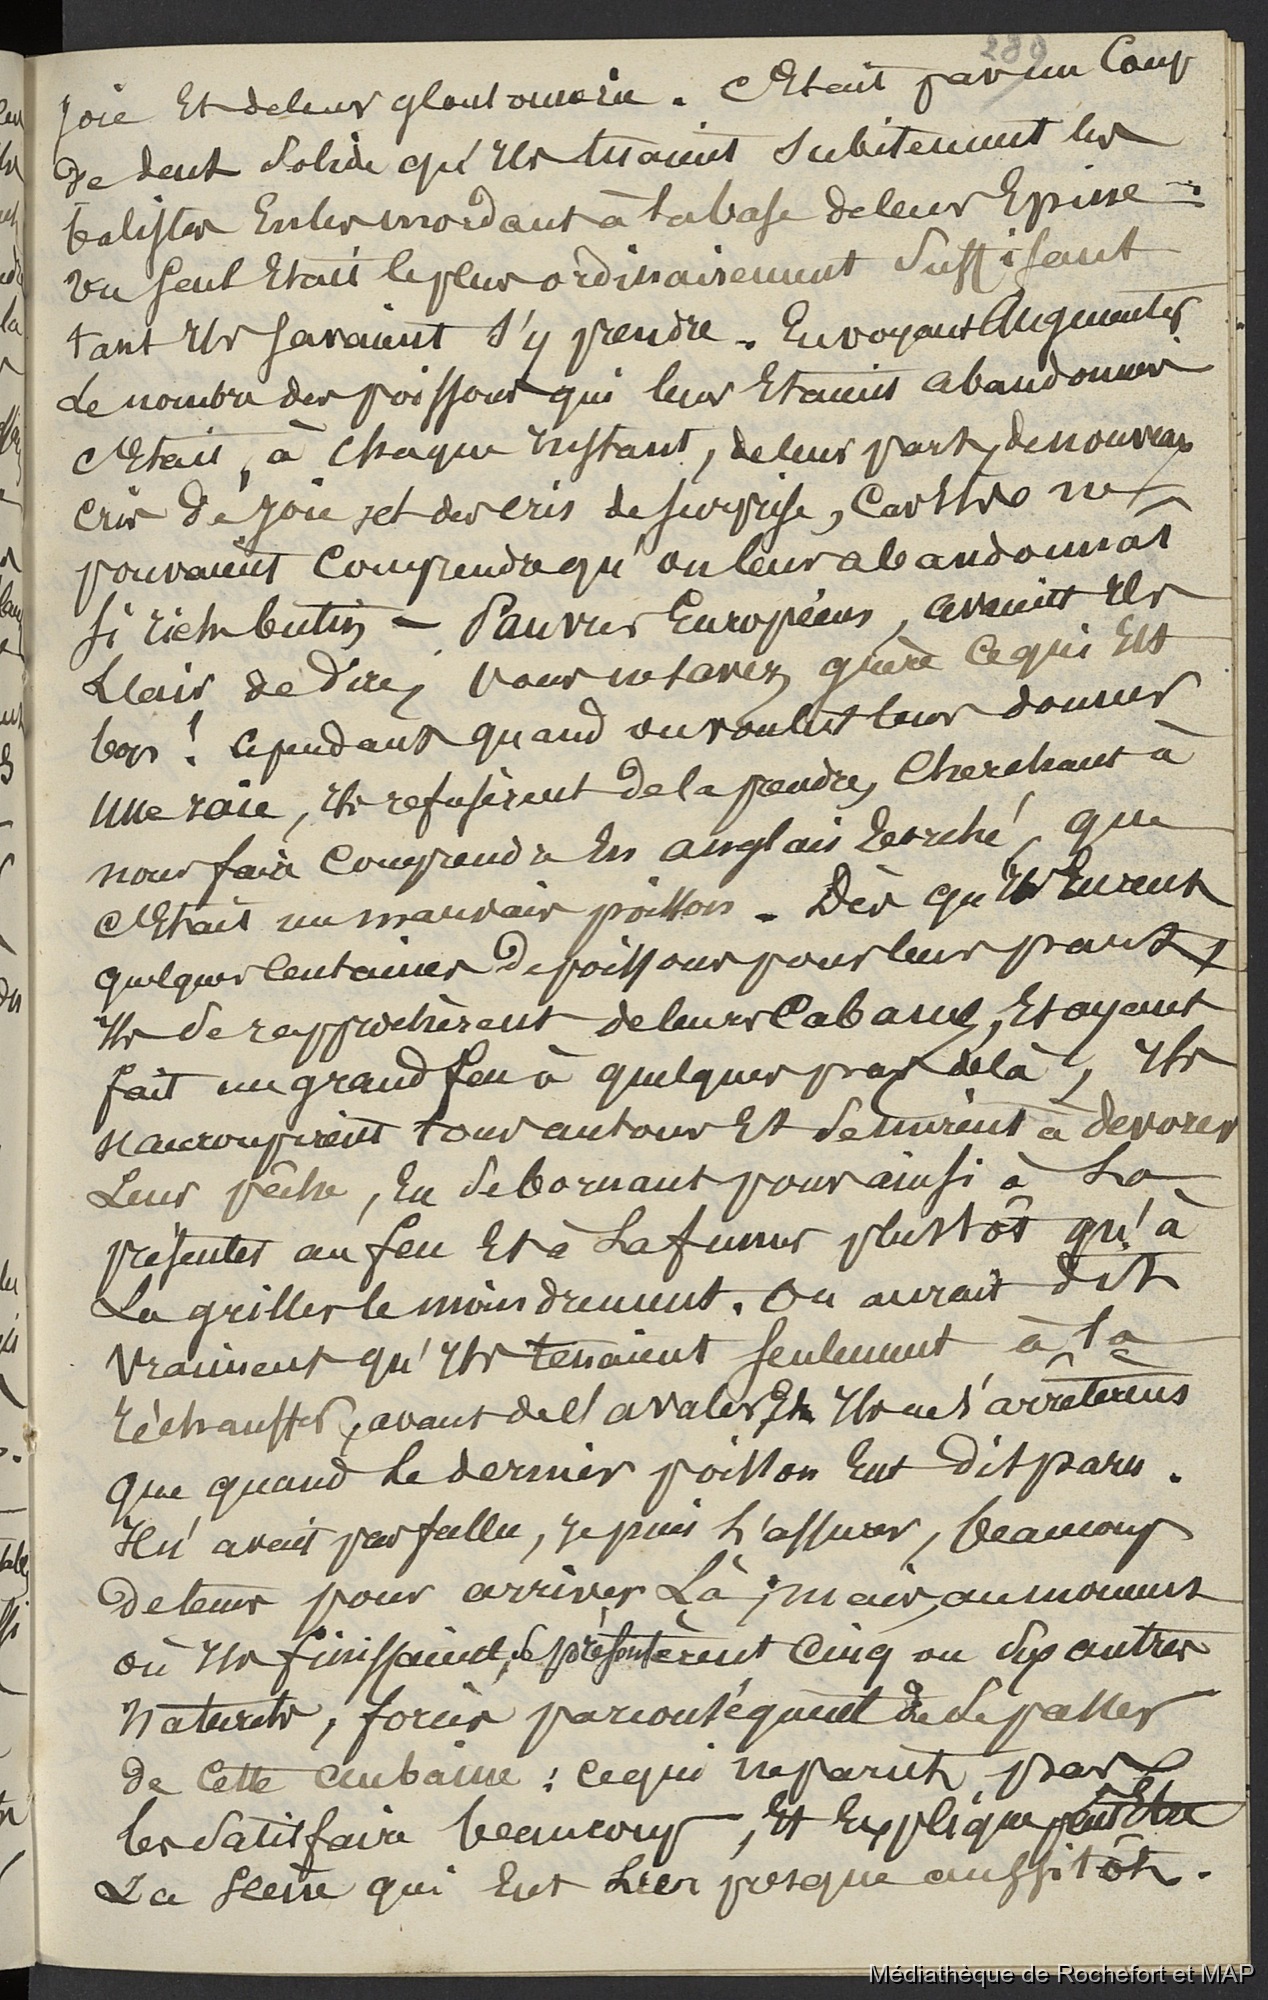 289
joie et de leur gloutonnerie. C'était par un coup
de dent solide qu'ils tuaient subitement les
balistes en les mordant à la base de leur épine :
un seul était le plus ordinairement suffisant
tant ils savaient s'y prendre. En voyant augmenter
le nombre des poissons qui leur étaient abandonnés
c'était, à chaque instant, de leur part, de nouveaux
cris de joie et des cris de surprise, car ils ne
pouvaient comprendre qu'on leur abandonnât
si riche butin – Pauvres Européens, avaient ils
l'air de dire, vous ne savez guère ce qui est
bon ! Cependant quand on voulut leur donner
une raie, ils refusèrent de la prendre, cherchant à
nous faire comprendre en anglais écorché, que
c'était un mauvais poisson. Dès qu'ils eurent
quelques centaines de poissons pour leur part,
ils se rapprochèrent de leurs cabanes, et ayant
fait un grand feu à quelques pas de là, ils
s'accroupirent tout autour et se mirent à dévorer
leur pêche, en se bornant pour ainsi à la
présenter au feu et à la fumer plustôt qu'à
la griller le moindrement. On aurait dit
vraiment qu'ils tenaient seulement à la
réchauffer, avant de l'avaler, et ils ne s'arrêterent
que quand le dernier poisson eut disparu.
Il n'avait pas fallu, je puis l'assurer, beaucoup
de tems pour arriver là ; mais, au moment
où ils finissaient, se présentèrent cinq ou six autres
naturels, forcés par conséquent de se passer
de cette aubaine : ce qui ne parut pas
les satisfaire beaucoup, et explique peut être
la scène qui eut lieu presque aussitôt.
Médiathèque de Rochefort et MAP